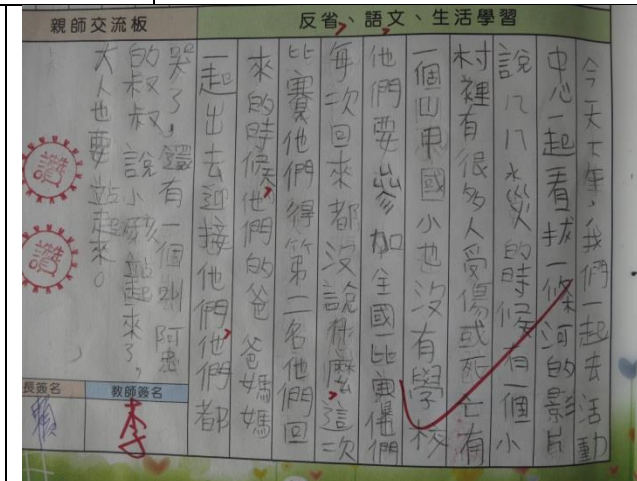 反省、語文、生活學習
今天下午,我們一起去活動
中心一起看拔一條河的影片
說八八水災的時候有一個小
村裡有很多人受傷或死亡有
一個山甲國小也沒有學校
他們要參加全國比賽他們
每次回來都沒說什麼,這次
比賽他們得第二名他們回
來的時候,他們的爸爸媽媽
一起出去迎接他們,他們都
親師交流板
哭了,還有一個叫阿忠
的叔叔說小孩站起來了,
大人也要站起來。
讚
讚
教師簽名
李
長簽名